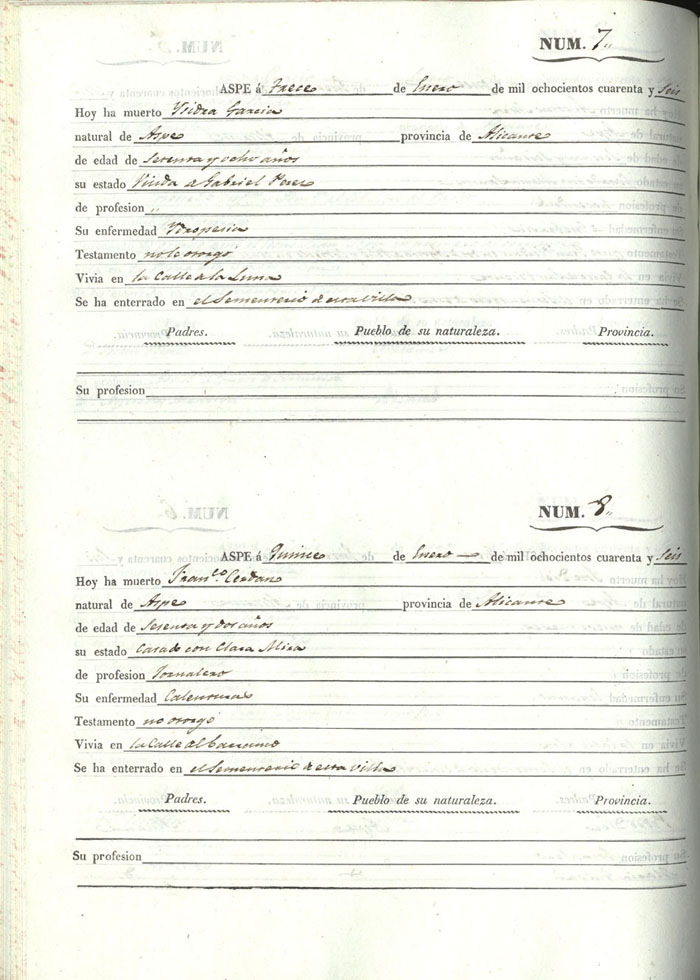 NUM. 7,,
ASPE á Trece de Enero de mil ochocientos cuarenta y Seis
Hoy ha muerto Ysidra Garcia
natural de Aspe provincia de Alicante
de edad de Setenta y ocho años
su estado Viuda de Gabriel Perez
de profesion ,,
Su enfermedad Ydropesia
Testamento no le otorgó
Vivia en la Calle de la Luna
Se ha enterrado en el Sementerio de esta Villa
Padres. Pueblo de su naturaleza. Provincia.
Su profesion
NUM. 8,,
ASPE á Quince de Enero de mil ochocientos cuarenta y Seis
Hoy ha muerto Fran.co Cerdan
natural de Aspe provincia de Alicante
de edad de Setenta y dos años
su estado Casado con Clara Mira
de profesion Jornalero
Su enfermedad Calentura
Testamento no otorgó
Vivia en la Calle del
Se ha enterrado en el Sementerio de esta Villa
Padres. Pueblo de su naturaleza. Provincia.
Su profesion